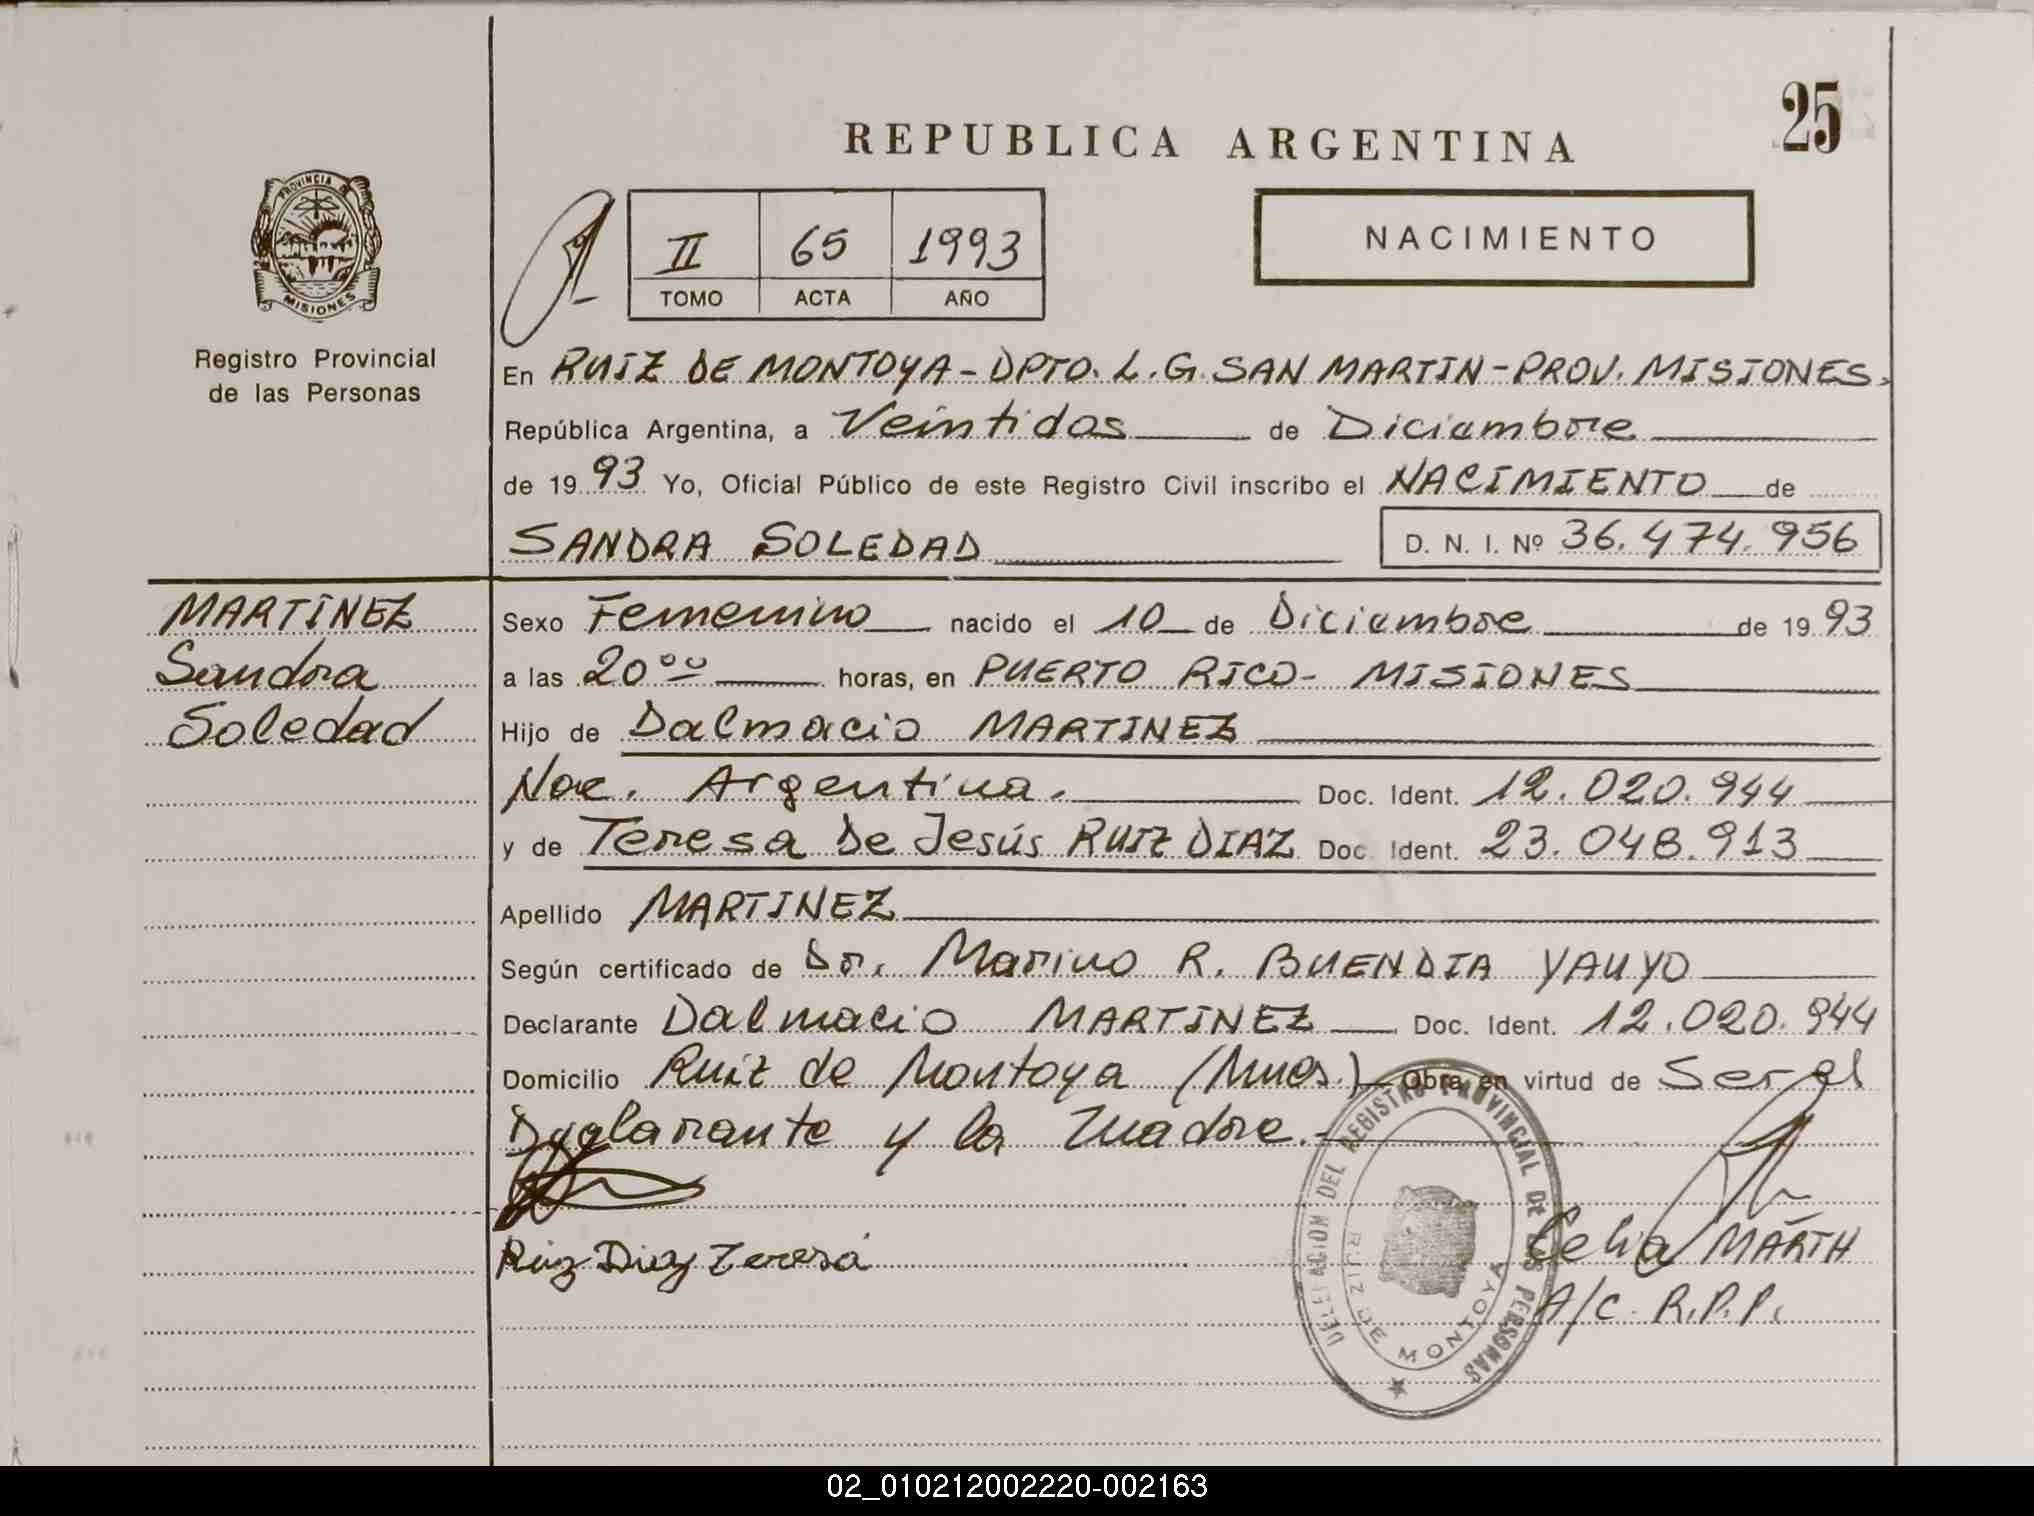 25
REPUBLICA ARGENTINA
PROVINCIA DE
MISIONES
Registro Provincial
de las Personas
II 65 1993
TOMO ACTA AÑO
NACIMIENTO
En RUIZ DE MONTOYA - DPTO. L.G. SAN MARTIN - PROV. MISIONES.
República Argentina, a Veintidos de Diciembre
de 1993 Yo, Oficial Público de este Registro Civil inscribo el NACIMIENTO de
SANDRA SOLEDAD D. N. I. Nº 36.474.956
MARTINEZ
Sandra
Soledad
Sexo Femenino nacido el 10 de Diciembre de 1993
a las 20 00 horas, en PUERTO RICO - MISIONES
Hijo de Dalmacio MARTINEZ
Nac. Argentina. Doc. Ident. 12.020.944
y de Teresa De Jesús RUIZ DIAZ Doc. Ident. 23.048.913
Apellido MARTINEZ
Según certificado de Dr. Marino R. BUENDIA YAUYO
Declarante Dalmacio MARTINEZ Doc. Ident. 12.020.944
Domicilio Ruiz de Montoya (Mnes.) Obra en virtud de Ser el
Declarante y la Madre.-
Ruiz Diaz Teresa
Celia MARTH
A/C. R.P.P.
DELEGACION DEL REGISTRO PROVINCIAL DE LAS PERSONAS
RUIZ DE MONTOYA
02_010212002220-002163